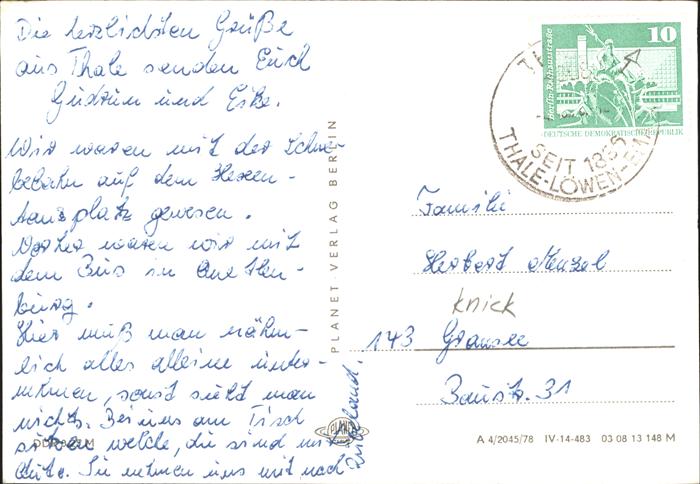 Die herzlichsten Grüße
aus Thale senden Euch
Gudrun und Eike.
Wir waren mit der Schwe-
bebahn auf dem Hexen-
tanzplatz gewesen.
Vorher waren wir mit
dem Bus in Quedlin-
burg.
Hier muß man nähm-
lich alles alleine unter-
nehmen, sonst sieht man
nichts. Bei uns am Tisch
sitzen welche, die sind mit
Auto. Sie nehmen uns mit nach
Rübeland.
PLANET VERLAG BERLIN
PLANET
10
Berlin, Rathausstraße
DEUTSCHE DEMOKRATISCHE REPUBLIK
SEIT 1835
THALE-LÖWEN-
Familie
Herbert Menzel
knick
143 Gransee
Baustr. 31
A 4/2045/78 IV-14-483 03 08 13 148 M